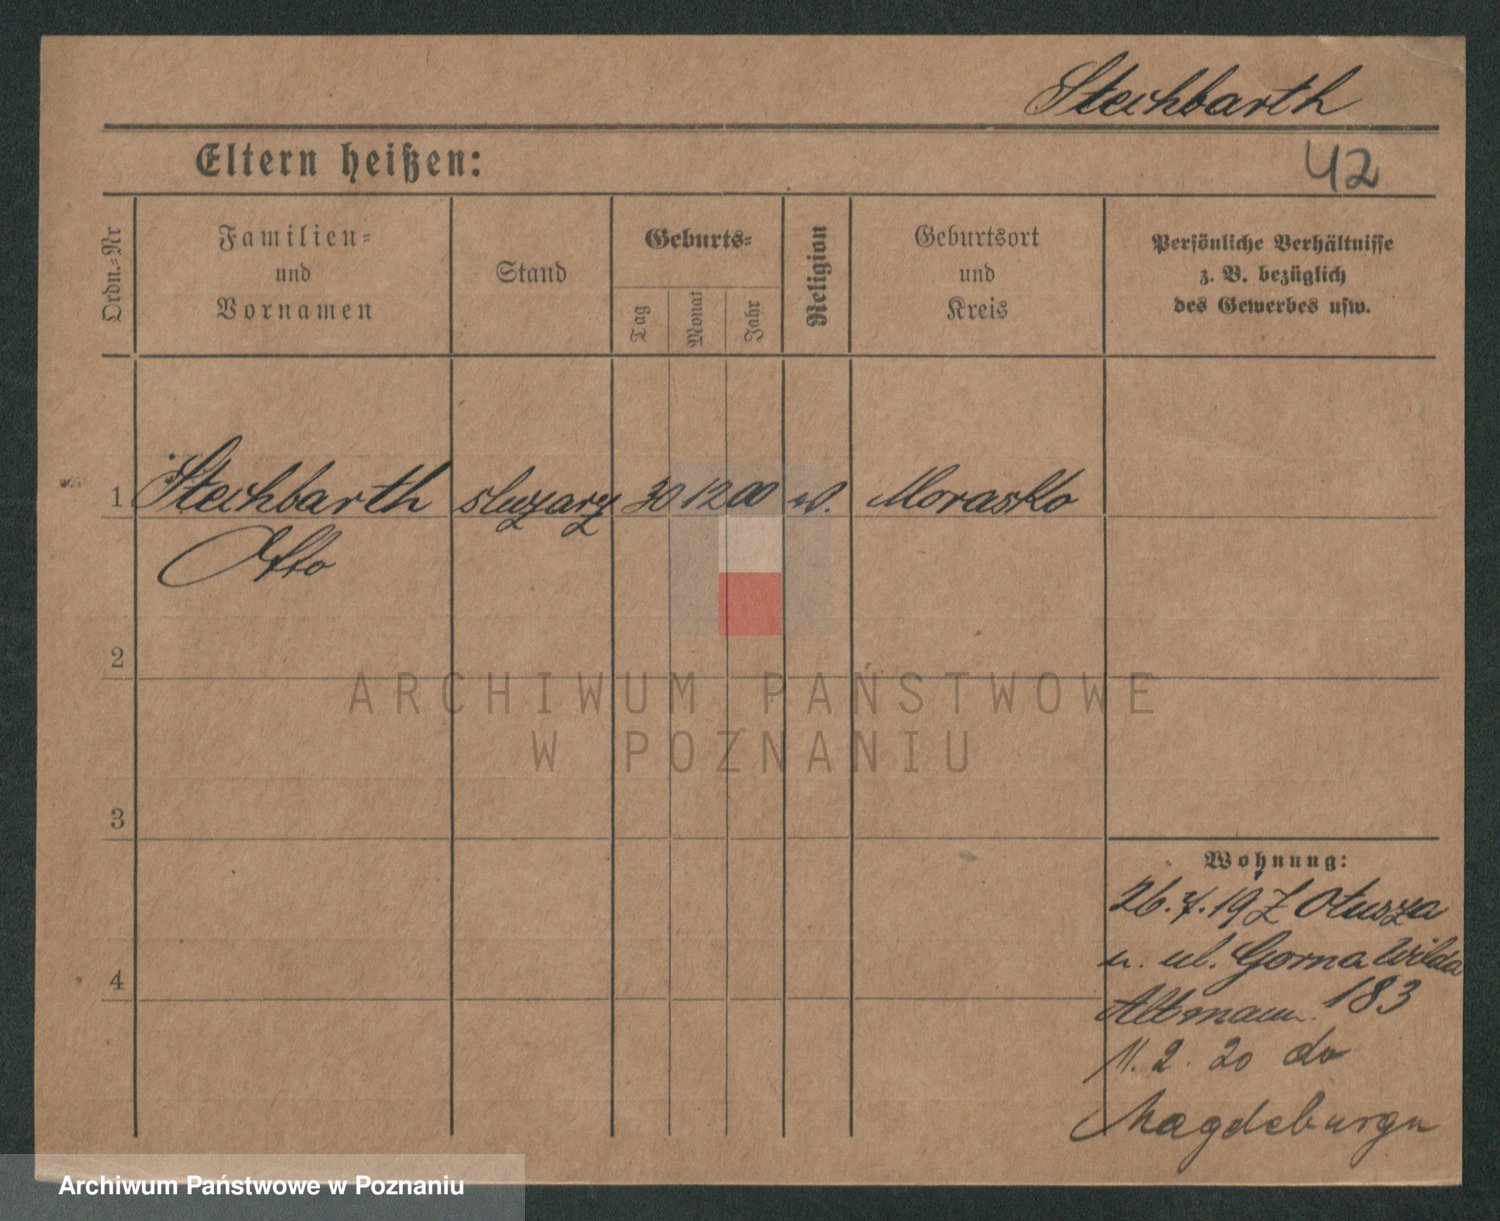 Stechbarth
Eltern heißen:
42
Ordn.-Nr
Familien-
und
Vornamen
Stand
Geburts-
Tag
Monat
Jahr
Religion
Geburtsort
und
Kreis
Persönliche Verhältnisse
z. B. bezüglich
des Gewerbes usw.
1 Stechbarth 30 12 00 Morasko
Otto
2
3
4
Wohnung:
26.7.19 Z Otusza
u. ul. Gorna Wilda
Altmann 183
11. 2. 20 do
Magdeburgu
ARCHIWUM PAŃSTWOWE
W POZNANIU
Archiwum Państwowe w Poznaniu